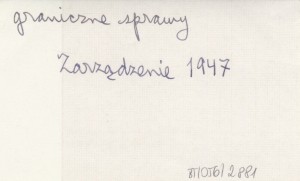 graniczne sprawy
Zarządzenie 1947
2881